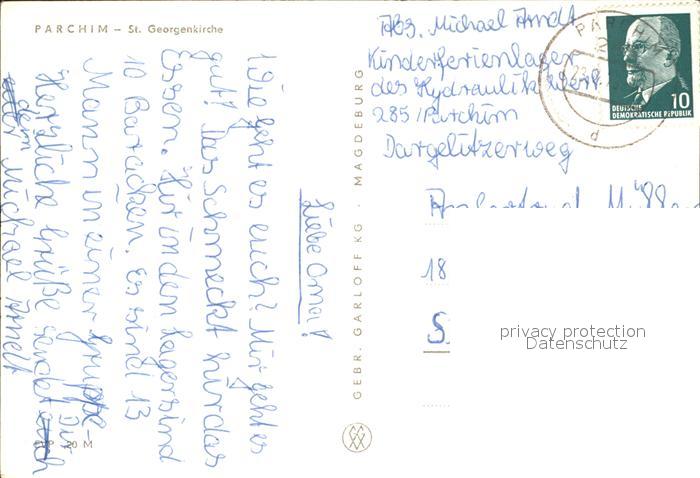 PARCHIM – St. Georgenkirche
Liebe Oma!
Wie geht es euch? Mir geht es
gut! Das schmeckt hir das
Essen. Hir in den Lager sind
10 Baracken. Es sind 13
Mann in einer Gruppe
Herzliche Grüße sendet Dir
dein Michael Arndt
EVP 20 M
GEBR. GARLOFF KG · MAGDEBURG
Abs. Michael Arndt
Kinderferienlager
des Hydraulik Werk
285 / Parchim
Dargelützerweg
18
S
PARCHIM
d
10
DEUTSCHE
DEMOKRATISCHE REPUBLIK
privacy protection
Datenschutz